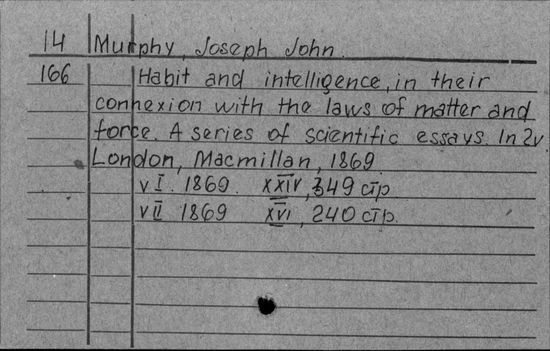 14 Murphy, Joseph John.
166 Habit and intelligence, in their
connexion with the laws of matter and
force. A series of scientific essays. In 2v.
London, Macmillan, 1869
v I. 1869. XXIV, 349 стр.
v II 1869 XVI, 240 стр.